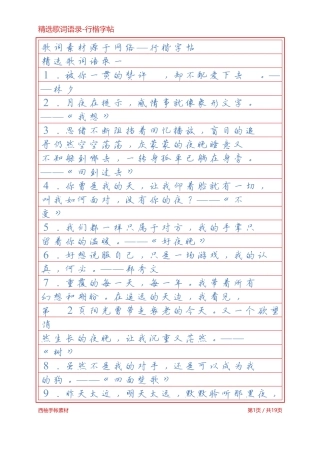 精选歌词语录-行楷字帖
歌词素材源于网络—行楷字帖
精选歌词语录一
1．被你一贯的赞许，却不配爱下去。—
—林夕
2．月夜在提示，感情事就像象形文字。
——《我想》
3．思绪不断阻挡着回忆播放，盲目的追
寻仍然空空荡荡，灰蒙蒙的夜晚睡意又
不知躲到哪去，一转身孤单已躺在身旁。
——《回到过去》
4．你曾是我的天，让我仰着脸就有一切，
叫我如何面对，没有你的夜？——《不
变》
5．我们都一样只属于对方，我的手掌只
留着你的温暖。——《好夜晚》
6．好想说服自己，只是一场游戏，我的认
真，何必。——郑秀文
7．重覆的每一天，每一年。我带着所有
幻想和期盼。在遥远的天边，我看见，
第2页阳光曾带是衰老的今天。又一个欲望清
然生长的夜晚，让我沉重又茫然。——
《树》
8．虽然不是我的对手，还是可以成为我
的狗。——《四面楚歌》
9．昨天太远，明天太远，默默聆听那里夜，
西灿字标素材
第1页／共19页